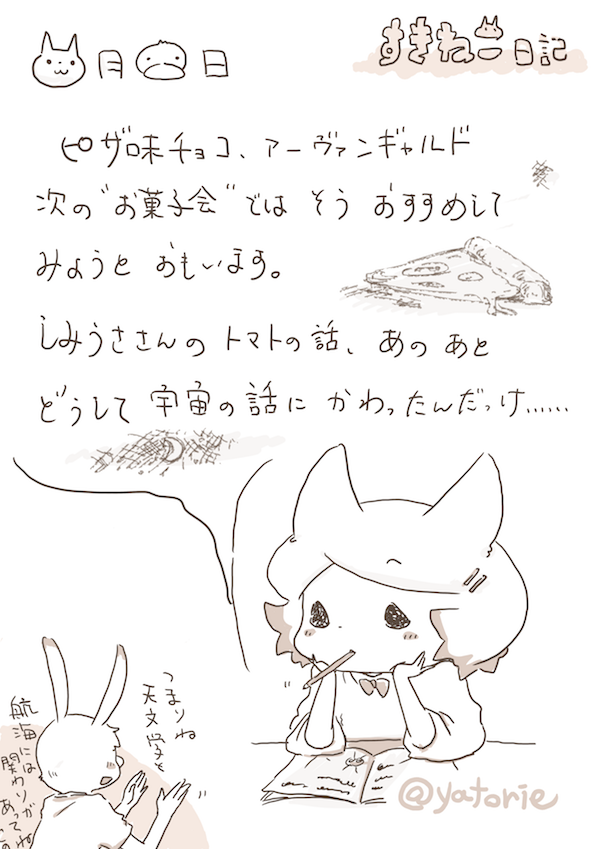 すきねこ日記
月 日
ピザ味チョコ、アーヴァンギャルド
次の“お菓子会”では そう おすすめして
みようと おもいます。
しみうささんの トマトの話、あの あと
どうして 宇宙の話に かわったんだっけ……
つまりね
天文学と
航海には
関わりがね
あって
@yatorie